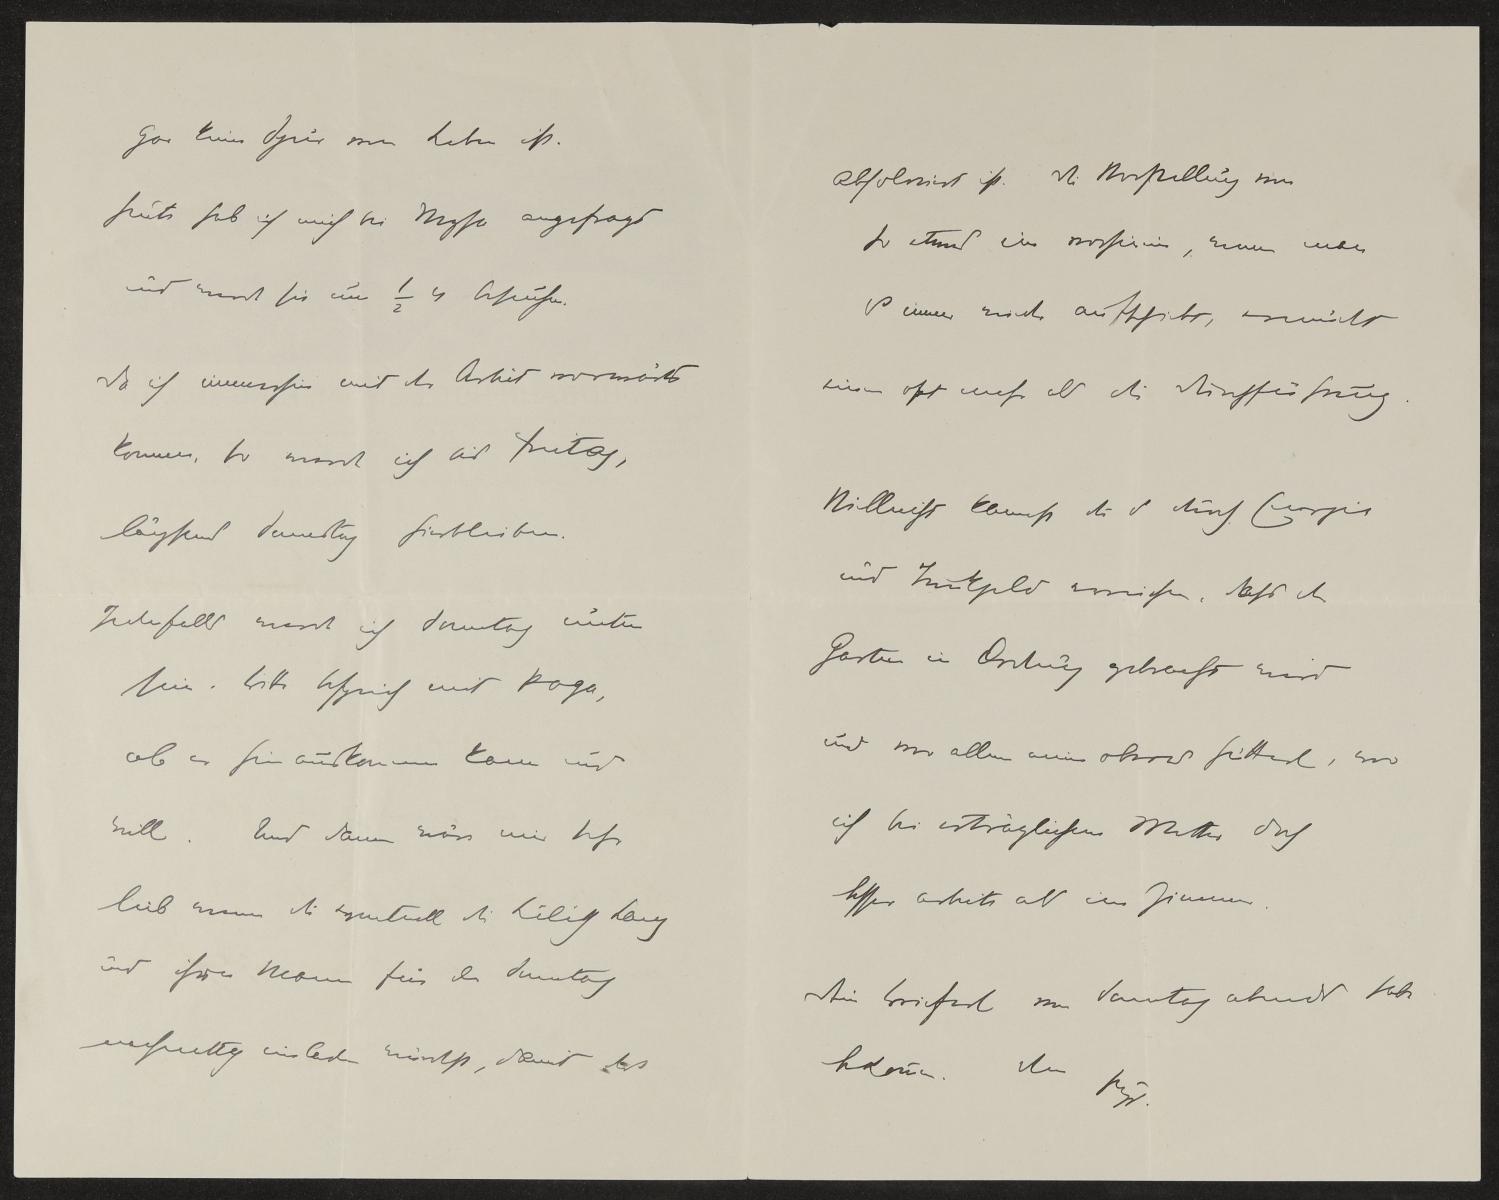 gar keine Spur von Leben ist.
Heute hab ich mich bei Mysa angesagt
und werd sie um ½ 4 besuchen.
Da ich immerhin mit der Arbeit vorwärts
komme, so werd ich bis Freitag,
längstens Samstag hierbleiben.
Jedenfalls werd ich Sonntag unten
sein. Bitte besprich mit Poga,
ob er hinauskommen kann und
will. Und dann wäre mir sehr
lieb wenn du eventuell die Lang
und ihren Mann für den Sonntag
nachmittag einladen würdest, damit das
absolviert ist. Die Vorstellung von
so etwas im vorhinein, wenn man
es immer wieder aufschiebt, ermüdet
einen oft mehr als die Durchführung.
Vielleicht kannst du es durch Energie
und Trinkgeld erreichen, dass der
Garten in Ordnung gebracht wird
und vor allem mein oberes Hütterl, wo
ich bei erträglichem Wetter doch
besser arbeite als im Zimmer.
Dein Brieferl von Samstag abends hab
bekommen. Dein